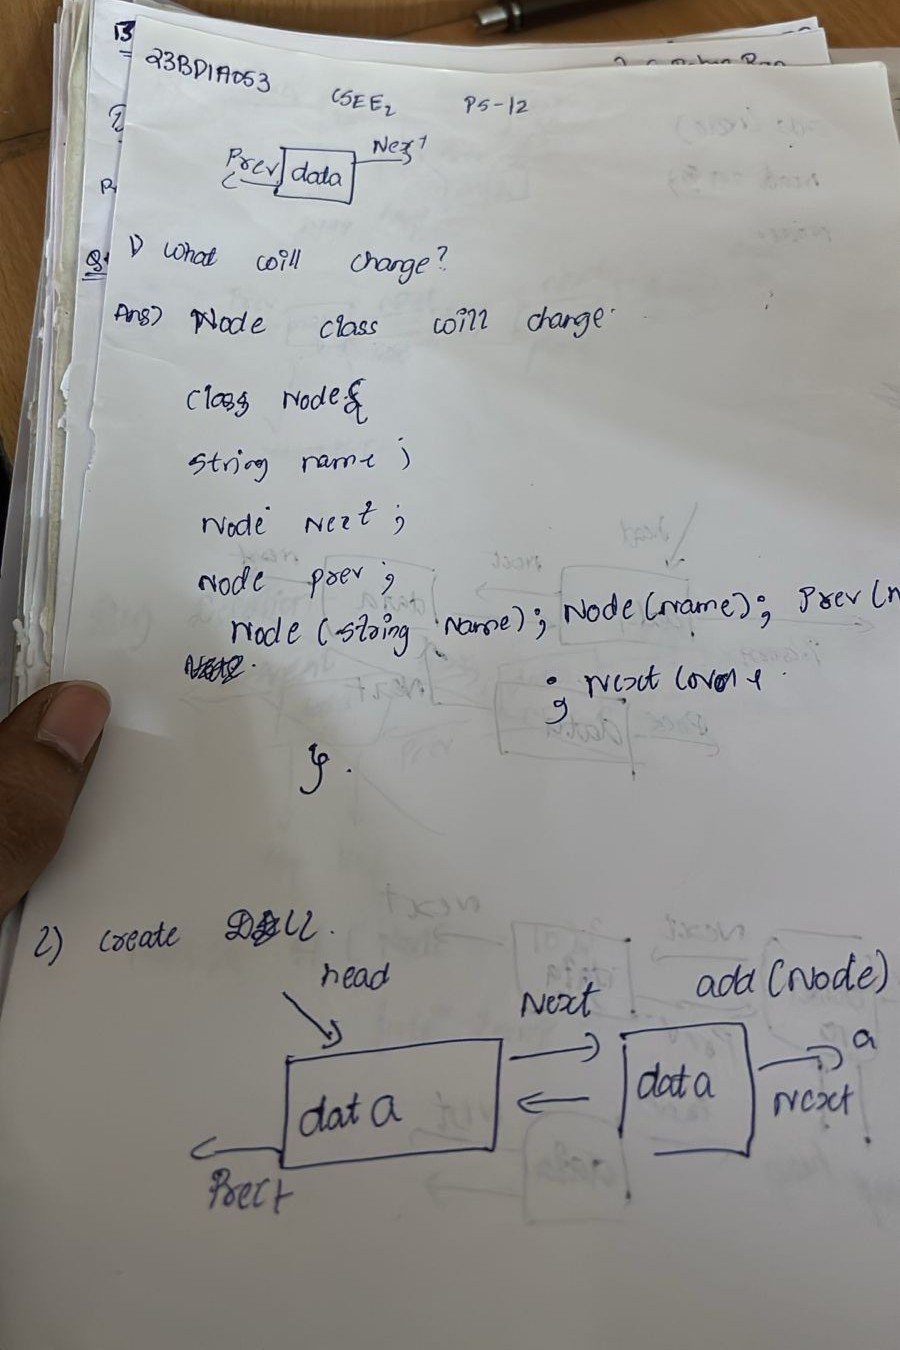 23BD1A053
CSEE2 PS-12
Prev data Next
1) What will change?
Ans) Node class will change.
class Node {
string name ;
Node Next ;
Node prev ;
Node (string Name); Node (name); Prev (n
; Next
}.
2) create DLL.
head
Next add (Node)
data data a
Next